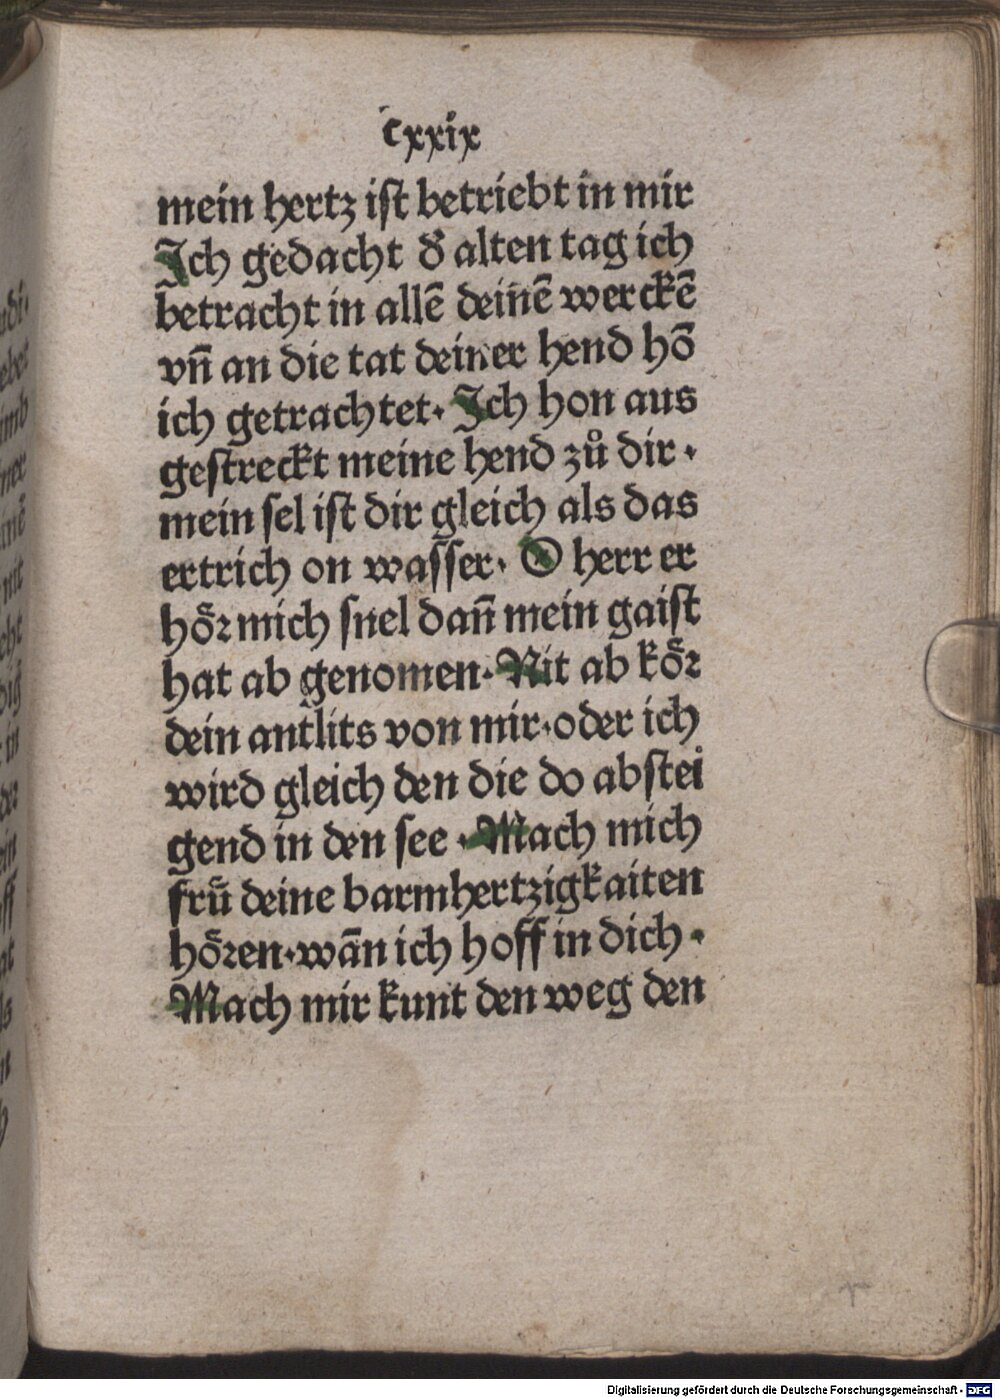 cxxix
mein hertz ist betriebt in mir
Ich gedacht d̓ alten tag ich
betracht in allē deinē werckē
vn̄ an die tat deiner hend hō
ich getrachtet. Ich hon aus
gestreckt meine hend zů dir.
mein sel ist dir gleich als das
ertrich on wasser. O herr er
hoͤr mich snel dan̄ mein gaist
hat ab genomen. Nit ab koͤr
dein antlits von mir. oder ich
wird gleich den die do abstei
gend in den see. Mach mich
fruͤ deine barmhertzigkaiten
hoͤren. wān ich hoff in dich.
Mach mir kunt den weg den
Digitalisierung gefördert durch die Deutsche Forschungsgemeinschaft - DFG